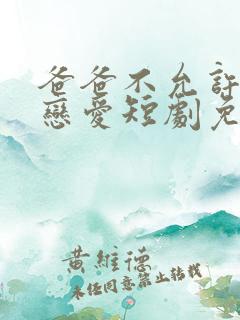 爸爸不允許
戀愛短劇免
黃維德
未經同意禁止轉載